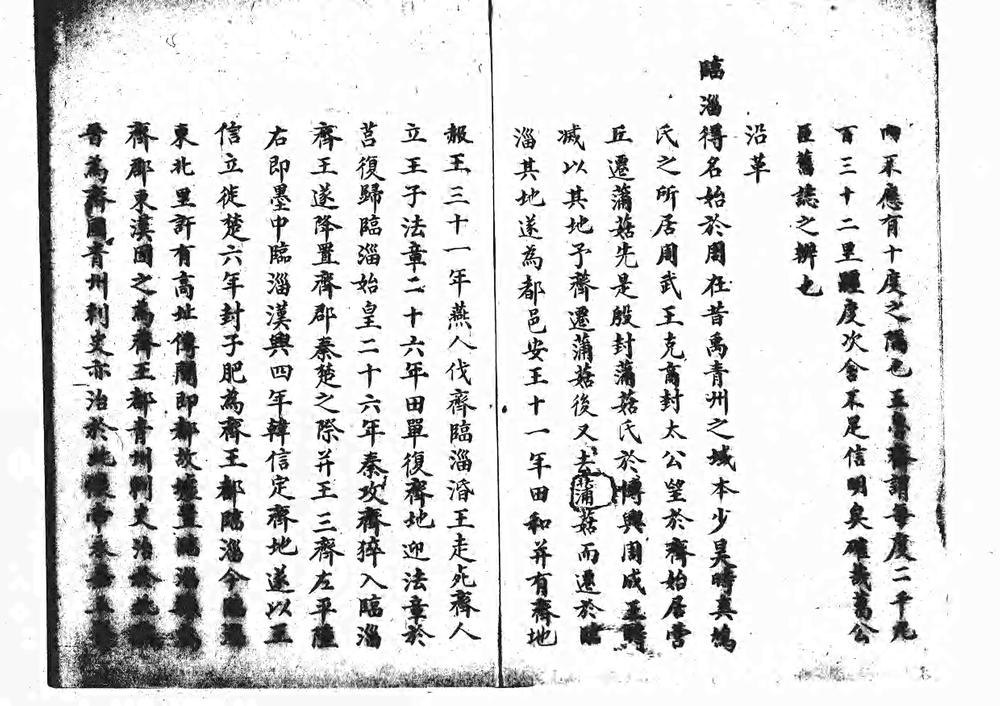 而不應有十度之隔也且魯齊謂每度二千九
百三十二里躔度次舍不足信明矣確哉葛公
臣舊誌之辨也
沿革
臨淄得名始於周在昔禹青州之域本少昊時爽鳩
氏之所居周武王克商封太公望於齊始居營
丘遷蒲菇先是殷封蒲菇氏於博興周成王時
滅以其地予齊遷蒲菇後又去蒲菇而遷於臨
淄其地遂為都邑安王十一年田和并有齊地
赧王三十一年燕人伐齊臨淄湣王走死齊人
立王子法章二十六年田單復齊地迎法章於
莒復歸臨淄始皇二十六年秦攻齊猝入臨淄
齊王遂降置齊郡秦楚之際并王三齊左平陸
右即墨中臨淄漢興四年韓信定齊地遂以王
信立徙楚六年封子肥為齊王都臨淄今臨淄
東北里許有高址傳聞即都故墟置臨淄縣為
齊郡東漢國之為齊王都青州刺史治於此
晉為齊國青州刺史亦治於此懷帝永嘉五